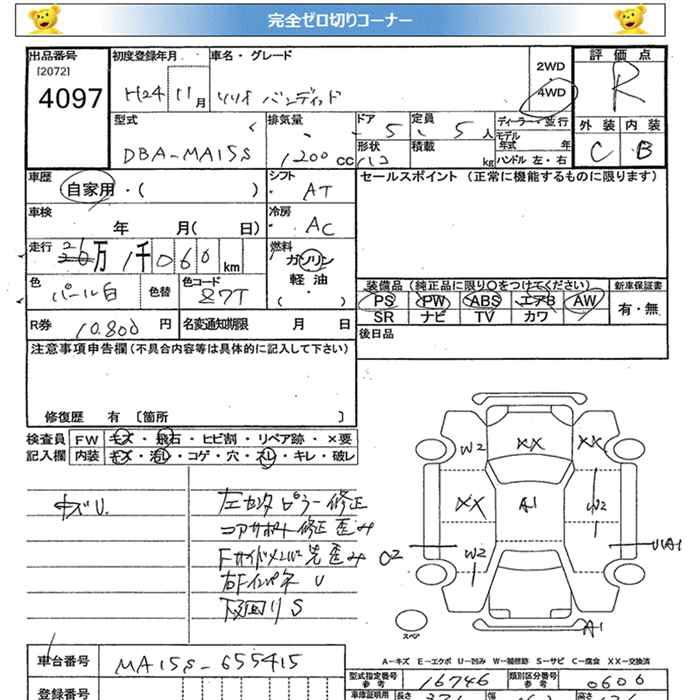 完全ゼロ切りコーナー
出品番号
[2072]
4097
初度登録年月
H24 11月
車名・グレード
ソリオ バンディット
2WD
4WD
評価点
R
外装 内装
C B
型式
DBA-MA15S
排気量
1200 CC
ドア
5
定員
5人
形状
積載
kg
ディーラー・並行
モデル
年式 年
ハンドル 左・右
車歴
自家用・( )
シフト
AT
車検
年 月( 日)
冷房
AC
走行
万 1千060 km
燃料
ガソリン
軽油
( )
色
パール白
色替
色コード
Z7T
R券
10,800円
名変通知期限 月 日
セールスポイント (正常に機能するものに限ります)
装備品 (純正品に限り○をつけてください)
PS PW ABS エアB AW
SR ナビ TV カワ
新車保証書
有・無
後日品
注意事項申告欄(不具合内容等は具体的に記入して下さい)
修復歴 有 [箇所 ]
検査員
記入欄
FW キズ・飛石・ヒビ割・リペア跡・×要
内装 キズ・汚レ・コゲ・穴・スレ・キレ・破レ
キズU.
左センターピラー修正
コアサポート修正歪み
Fサイドメンバー先歪み
右Fインパネ U
下回りS
W2 XX XX
XX A1 W2
W2
UA1
A1
スペア
A-キズ E-エクボ U-凹み W-補修跡 S-サビ C-腐食 XX-交換済
車台番号
MA15S-655415
型式指定番号
参考
16746
類別区分番号
参考
0606
登録番号
車庫証明用
長さ
幅
高さ